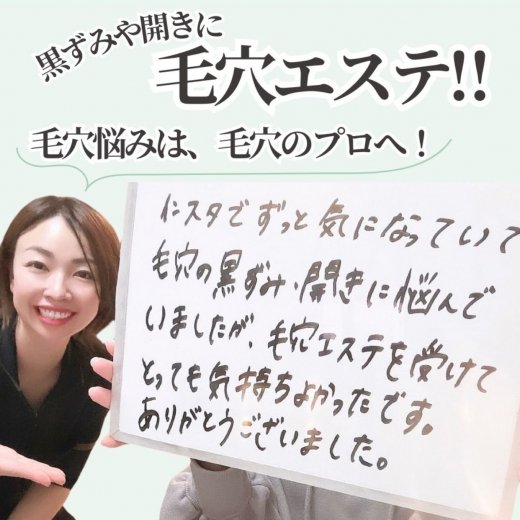 黒ずみや開きに
毛穴エステ!!
毛穴悩みは、毛穴のプロへ！
インスタでずっと気になっていて
毛穴の黒ずみ、開きに悩んで
いましたが、毛穴エステを受けて
とっても気持ちよかったです。
ありがとうございました。